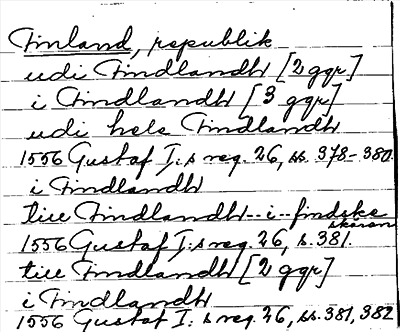 Finland, republik
udi Findlandh [2 ggr]
i Findlandh [3 ggr]
udi hele Findlandh
1556 Gustaf I:s reg. 26, ss. 378-380.
i Findlandh
till Findlandh--i--findske skaran
1556 Gustaf I:s reg. 26, s. 381.
till Findlandh [2 ggr]
i Findlandh
1556 Gustaf I:s reg. 26, ss. 381, 382